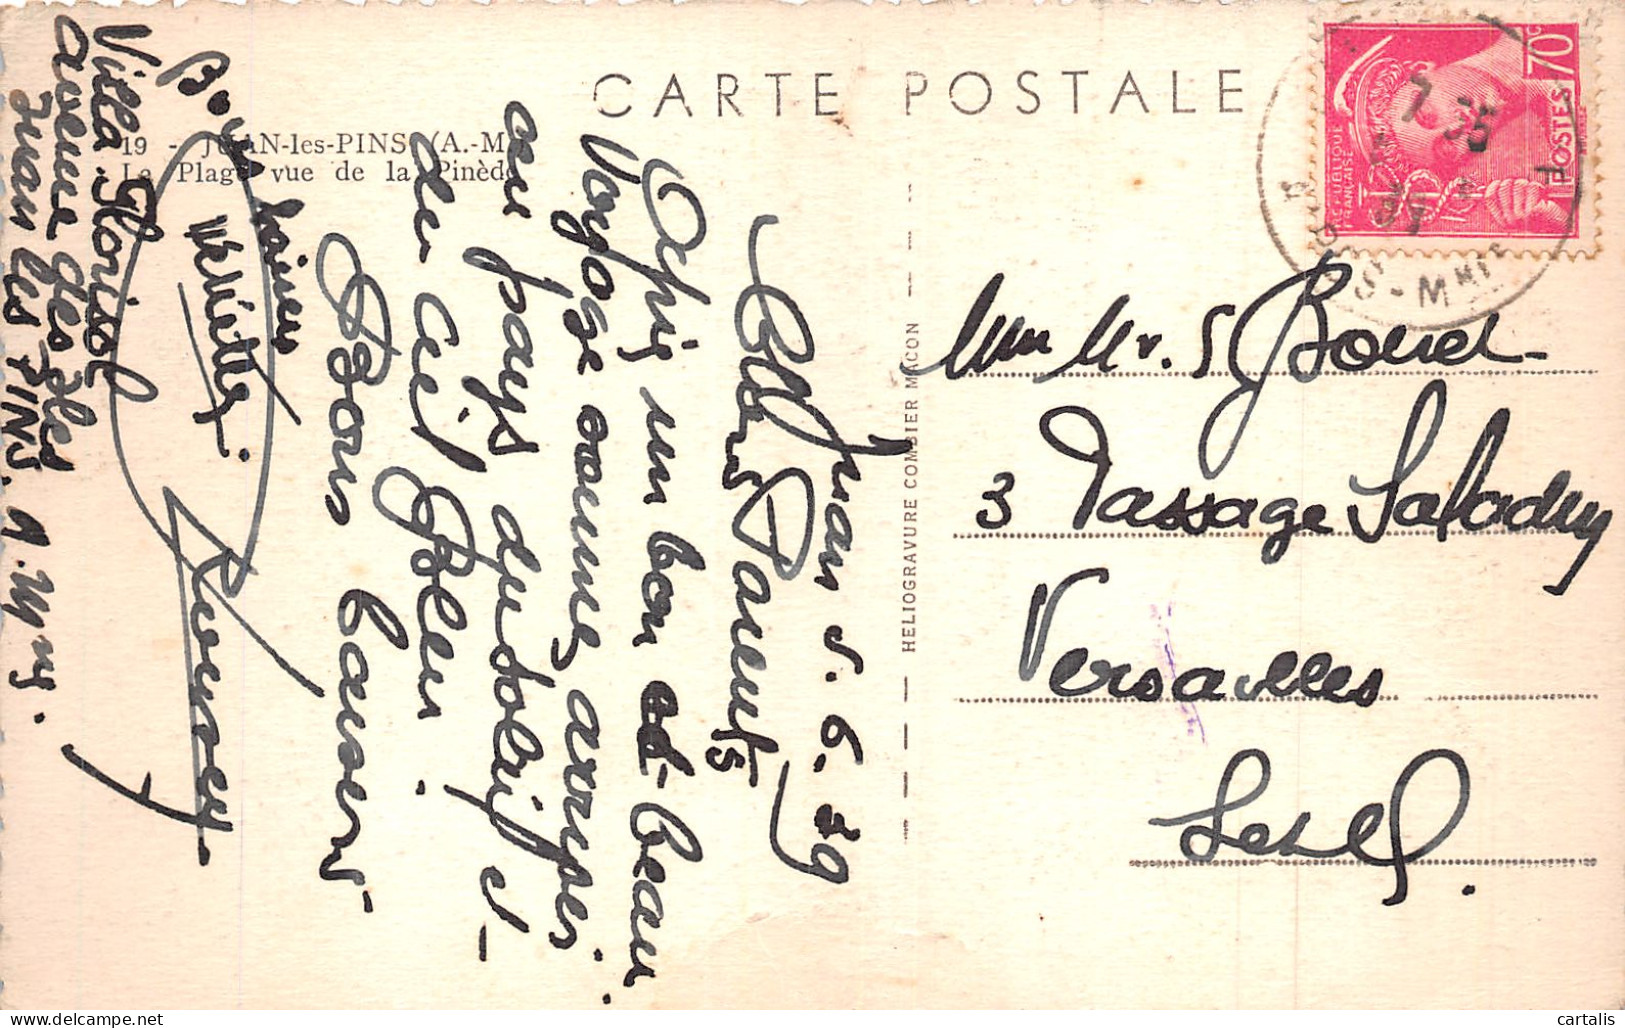 CARTE POSTALE
19 - JUAN-les-PINS (A.-M
La Plage vue de la Pinède
Juan 5.6.39
Chers Parents
après un bon et beau
Voyage sommes arrivés
au pays du soleil et
du ciel Bleu.
Bons baisers
Bons baisers
Villa Floriol
avenue des Iles
Juan les PINS. A. My.
HELIOGRAVURE COMBIER MACON
70c
POSTES
REPUBLIQUE
FRANCAISE
7 35
Mr.
3 Passage Saladin
Versailles
S et O.
cartalis